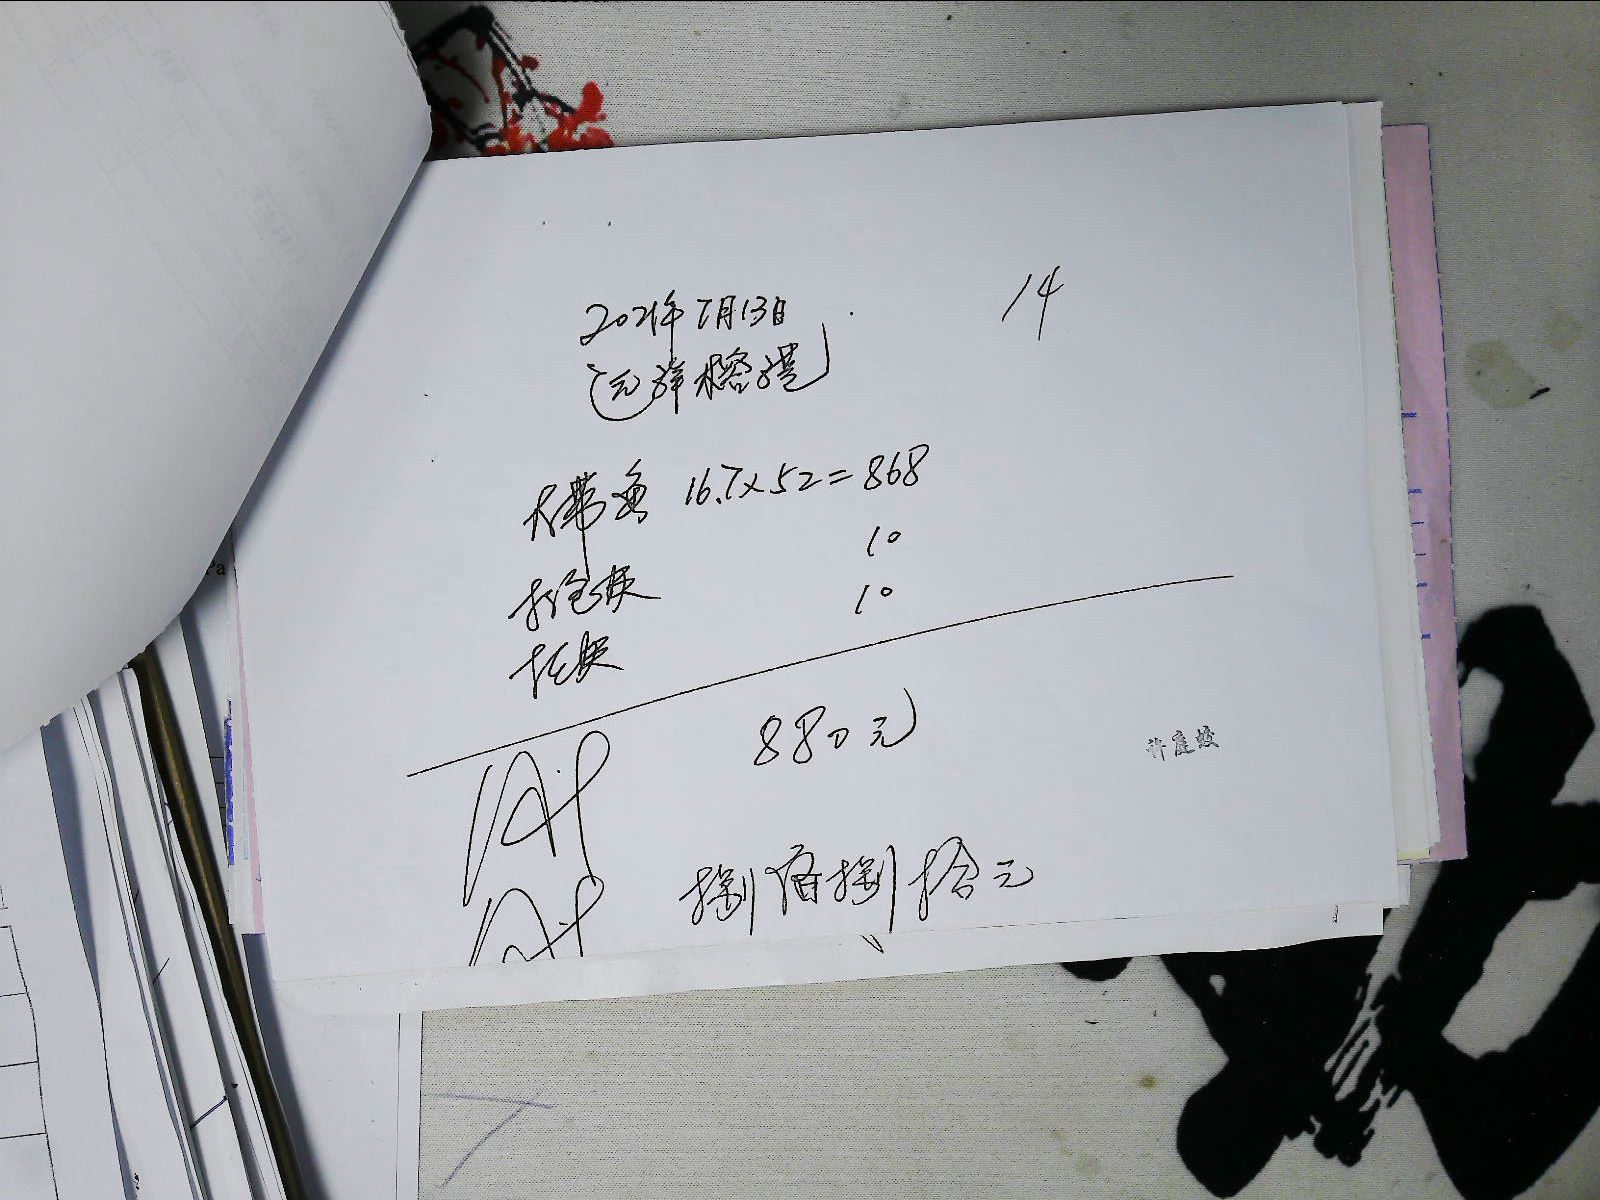 2021年7月13日
14
远洋榕港
大带鱼 16.7×52=868
10
打包费
10
托费
880元
许庭蛟
捌佰捌拾元